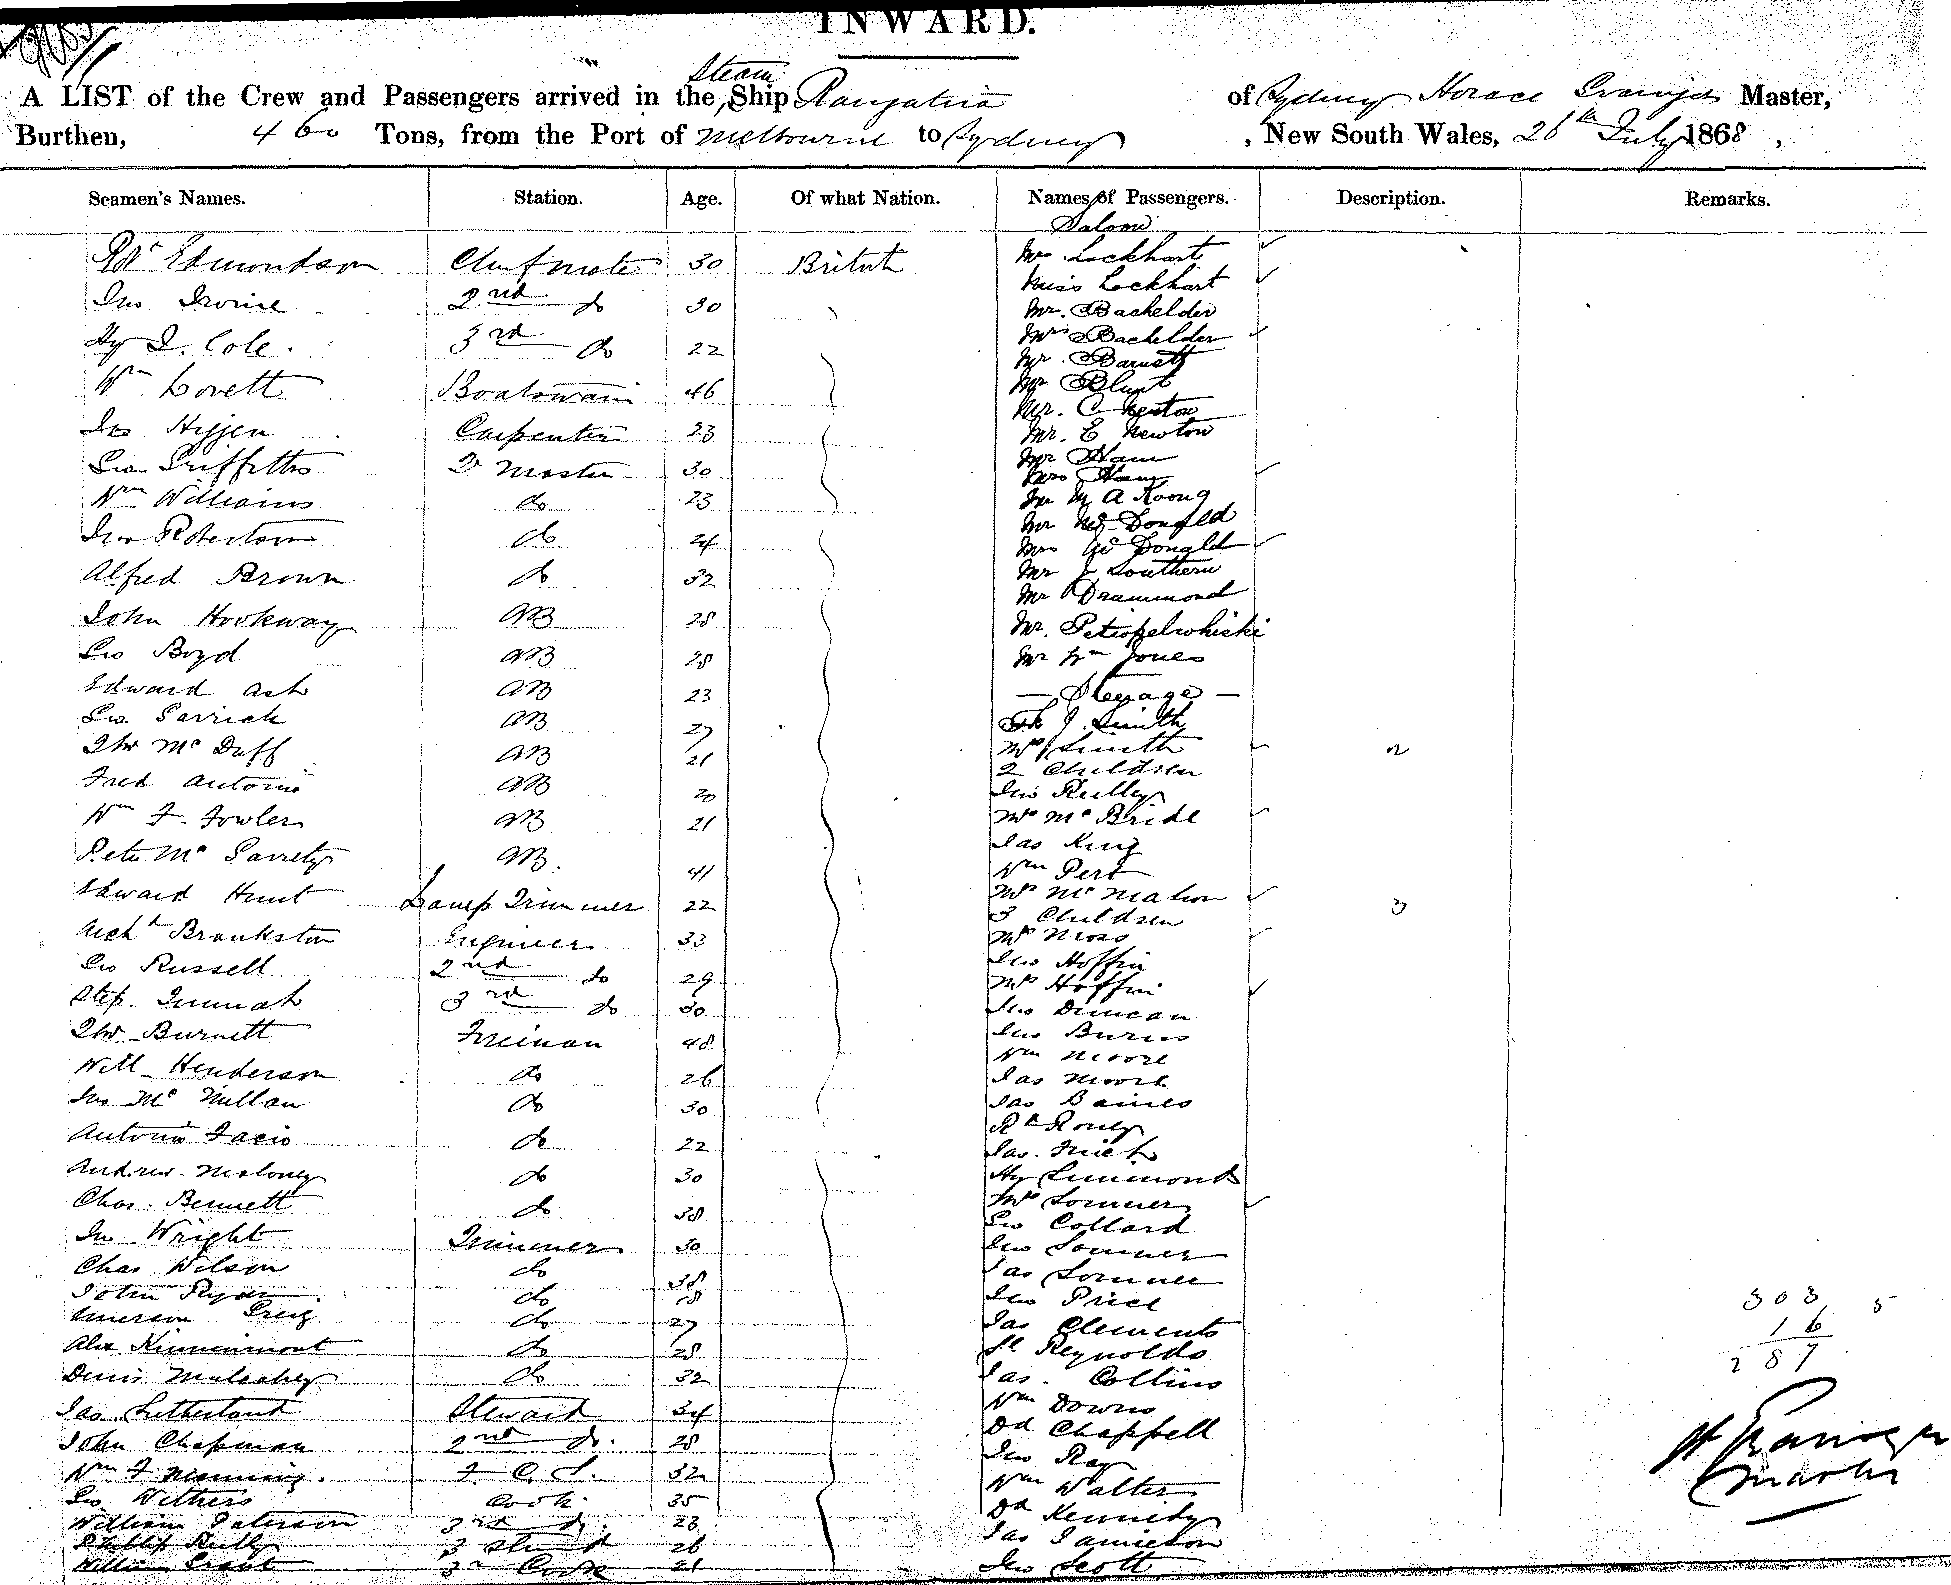 INWARD.
A LIST of the Crew and Passengers arrived in the Steam Ship Rangatira of Sydney Horace Master,
Burthen, 460 Tons, from the Port of Melbourne to Sydney, New South Wales, 26th July 1868,
Seamen's Names. Station. Age. Of what Nation. Names of Passengers. Description. Remarks.
Saloon
Edmondson Chief mate 30 British Mrs Lockhart
Miss Lockhart
Jno Irvine 2nd do 30 Mr. Bachelder
Hy J. Cole. 3rd do 22 Mrs Bachelder
Mr. Barnett
Wm Lovett Boatswain 46 Mr Blunt
Mr. C Newton
Jno Carpenter 23 Mr. E Newton
Geo Griffiths Qr Master 30 Mr Ham
Mrs Ham
Wm Williams do 23 Mr M A
Jno Robertson do 24 Mr McDonald
Mrs McDonald
Alfred Brown do 32 Mr J Southern
Mr Drummond
John Hookway AB 28 Mr.
Geo Boyd AB 28 Mr Wm Jones
Edward Ash AB 23 — Steerage —
Geo. Garrick AB 27 J. Smith
Thos McDuff AB 21 Mrs Smith 2
2 Children
Fred Antonio AB 20 Jno Reilly
Wm F. Fowler AB 21 Mrs McBride
Jas King
Peter McGarrety AB. 41 Wm Pert
Edward Hunt Lamp Trimmer 22 Mrs McMahon 3
3 Children
Archd Brankston Engineer 33 Mrs Moss
Jno Hoffin
Geo Russell 2nd do 29 Mrs Hoffin
Step. 3rd do 30 Jno Duncan
Thos Burnett Fireman 48 Jno Burns
Wm Moore
Will Henderson do 26 Jas Moore
Jno McMillan do 30 Jas Baines
Antonio Facio do 22
Jas.
Andrew Moloney do 30 Hy Simmonds
Chas. Bennett do 38 Mrs Sommer
Geo Collard
Jno Wright Trimmer 30 Jno Sommer
Chas Wilson do 38 Jas Sommer
John Ryan do 28 Jno Price 303 5
Emerson Greig do 27 Jas Clements 16
Alex Kinninmont do 28 Reynolds 287
Denis Mulcahey do 32 Jas. Collins
Jas. Sutherland Steward 34 Wm Downs
John Chapman 2nd do. 28 Dd Chappell
Wm F Manning. F. C. S. 32 Jno Ray
Geo Withers Cook 35 Wm Walters
William Paterson 3rd do. 23 Dd Kennedy
Phillip Reilly 3 26 Jas Jamieson
William Grant 3rd Cook 21 Jno Scott
Master